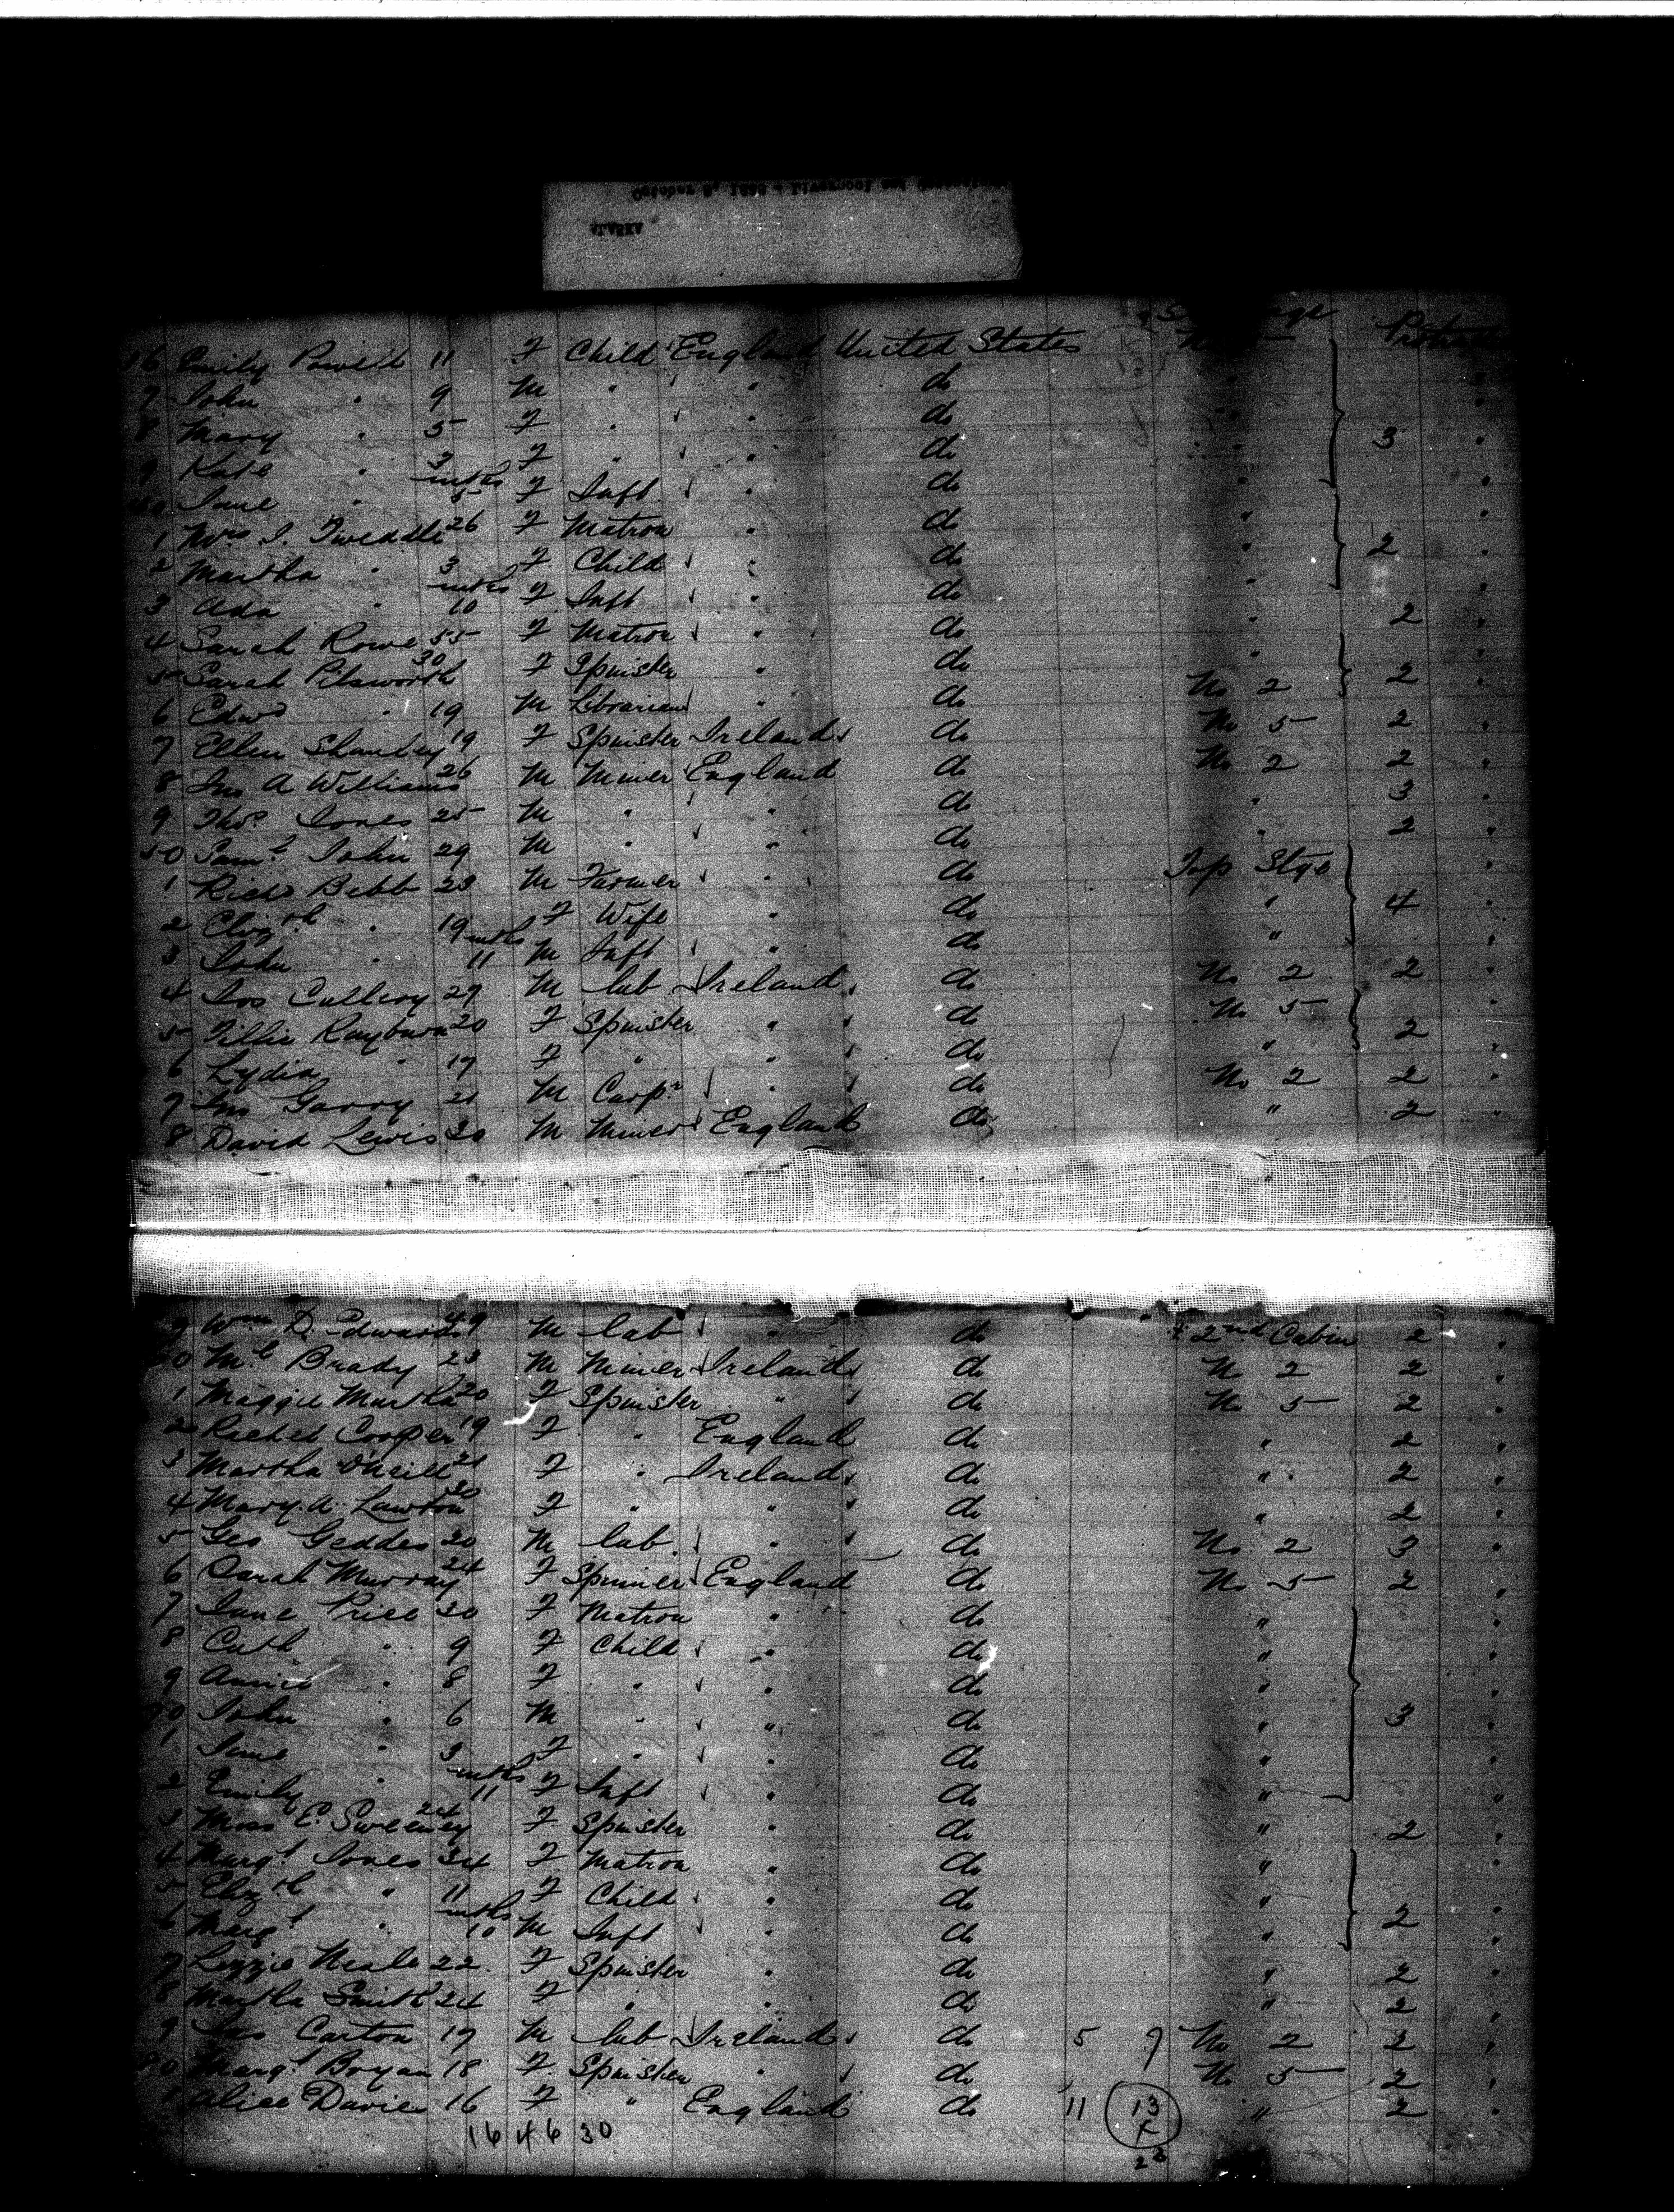 October 8, 1888 - Liverpool and
ALASKA
16 Emily Powell 11 F Child England United States No 5 Protracted
7 John " 9 M " " do " "
8 Mary " 5 F " " do " 3 "
9 Kate " 3 F " " do " "
40 Jane " mths 5 F Inft " do " "
1 Mrs J. Tweddle 26 F Matron " do " "
2 Martha " 3 F Child " do " 2 "
3 Ada " mths 10 F Inft " do " "
4 Sarah Rowe 55 F Matron " do " 2 "
5 Sarah Pilsworth 30 F Spinster " do " "
6 Edwd " 19 M Librarian " do No 2 2 "
7 Ellen Shanley 19 F Spinster Ireland do No 5 2 "
8 Jno A Williams 26 M Miner England do No 2 2 "
9 Thos Jones 25 M " " do " 3 "
50 Saml John 29 M " " do " 2 "
1 Richd Bebb 23 M Farmer " do Top Stge "
2 Elizth " 19 F Wife " do " 4 "
3 John " mths 11 M Inft " do " "
4 Jos Cullroy 29 M lab Ireland do No 2 2 "
5 Tillie Rayburn 20 F Spinster " do No 5 "
6 Lydia " 17 F " " do " 2 "
7 Jno Garry 21 M Carpr " do No 2 2 "
8 David Lewis 20 M Miner England do " 2 "
9 Wm D. Edwards 49 M lab " do 2nd Cabin 2 "
60 Ml Brady 23 M Miner Ireland do No 2 2 "
1 Maggie Murtha 20 F Spinster " do No 5 2 "
2 Rachel Cooper 19 F " England do " 2 "
3 Martha O'Neill 21 F " Ireland do " 2 "
4 Mary A. Lawton 20 F " " do " 2 "
5 Geo Geddes 20 M lab " do No 2 3 "
6 Sarah Murray 24 F Spinner England do No 5 2 "
7 Jane Price 30 F Matron " do " "
8 Cath " 9 F Child " do " "
9 Annie " 8 F " " do " "
70 John " 6 M " " do " 3 "
1 Jane " 3 F " " do " "
2 Emily " mths 11 F Inft " do " "
3 Miss C. Sweeney 24 F Spinster " do " 2 "
4 Margt Jones 34 F Matron " do " "
5 Elizth " 11 F Child " do " "
6 Margt " mths 10 M Inft " do " 2 "
7 Lizzie Neale 22 F Spinster " do " 2 "
8 Martha Smith 24 F " " do " 2 "
9 Jas Carton 19 M lab Ireland do 5 7 No 2 2 "
80 Margt Bryan 18 F Spinster " do No 5 2 "
1 Alice Davies 16 F " England do 11 13 " 2 "
16 46 30